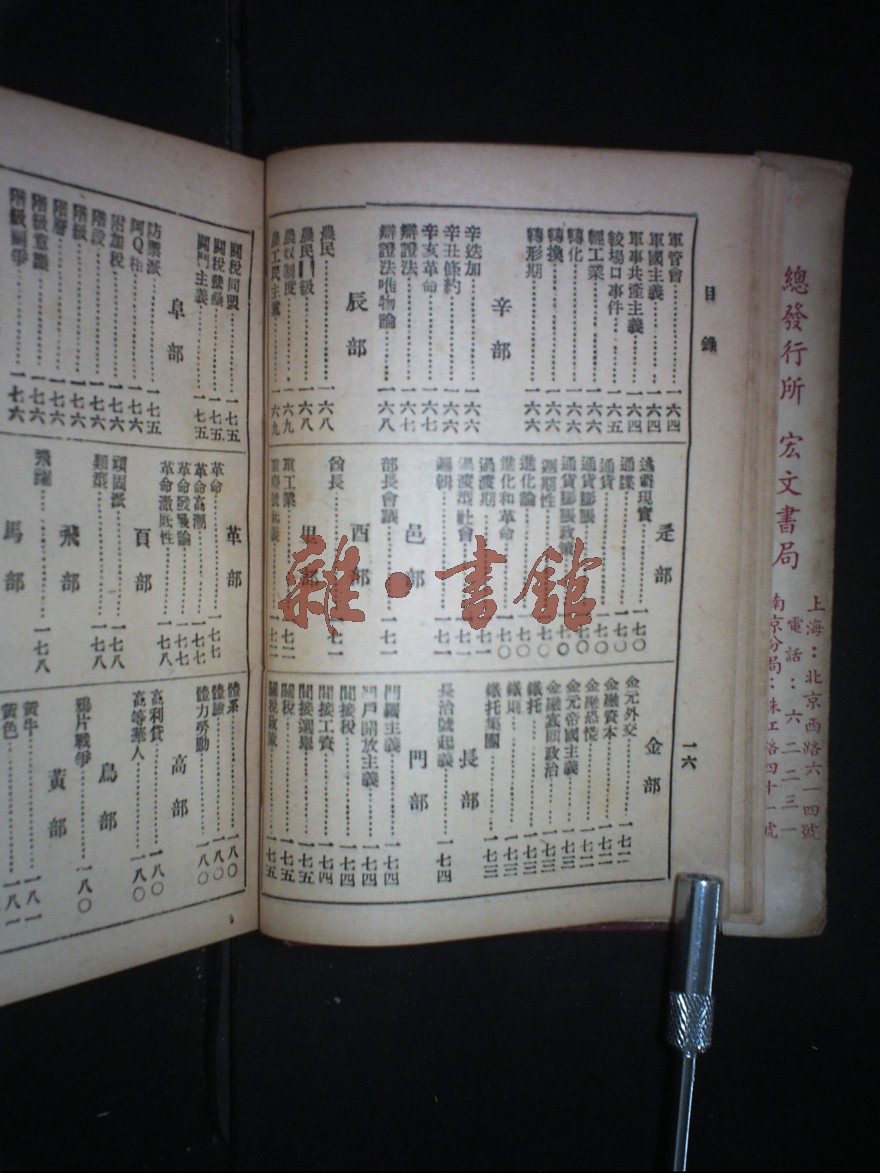 總發行所 宏文書局
上海：北京西路六一四號
電話：六二二三一
南京分局：珠江路四十一號
目錄
一六
軍管會 一六四
軍國主義 一六四
軍事共產主義 一六四
較場口事件 一六五
輕工業 一六六
轉化 一六六
轉換 一六六
轉形期 一六六
辛部
辛迭加 一六六
辛丑條約 一六六
辛亥革命 一六七
辯證法 一六七
辯證法唯物論 一六八
辰部
農民 一六八
農民 級 一六八
農奴制度 一六九
農工民主黨 一六九
辵部
逃避現實 一七〇
通諜 一七〇
通貨 一七〇
通貨膨脹 一七〇
通貨膨脹政策 一七〇
週期性 一七〇
進化論 一七〇
進化和革命 一七〇
過渡期 一七一
過渡型社會 一七一
邏輯 一七一
邑部
部長會議 一七一
酉部
酋長 一七一
里部
重工業 一七二
一七二
金部
金元外交 一七二
金融資本 一七二
金融恐慌 一七二
金元帝國主義 一七二
金融寡頭政治 一七三
鐵托 一七三
鐵則 一七三
鐵托集團 一七三
長部
長治號起義 一七四
門部
門羅主義 一七四
門戶開放主義 一七四
間接稅 一七四
間接工資 一七四
間接選舉 一七五
關稅 一七五
關稅政策 一七五
關稅同盟 一七五
關稅壁壘 一七五
關門主義 一七五
阜部
防禦派 一七五
阿Q相 一七六
附加稅 一七六
階段 一七六
階級 一七六
階層 一七六
階級意識 一七六
階級鬭爭 一七六
革部
革命 一七七
革命高潮 一七七
革命發展論 一七七
革命澈底性 一七八
頁部
頑固派 一七八
類型 一七八
飛部
飛躍 一七八
馬部
體系 一八〇
體驗 一八〇
體力勞動 一八〇
高部
高利貸 一八〇
高等華人 一八〇
鳥部
鴉片戰爭 一八〇
黃部
黃牛 一八一
黃色 一八一
雜·書館